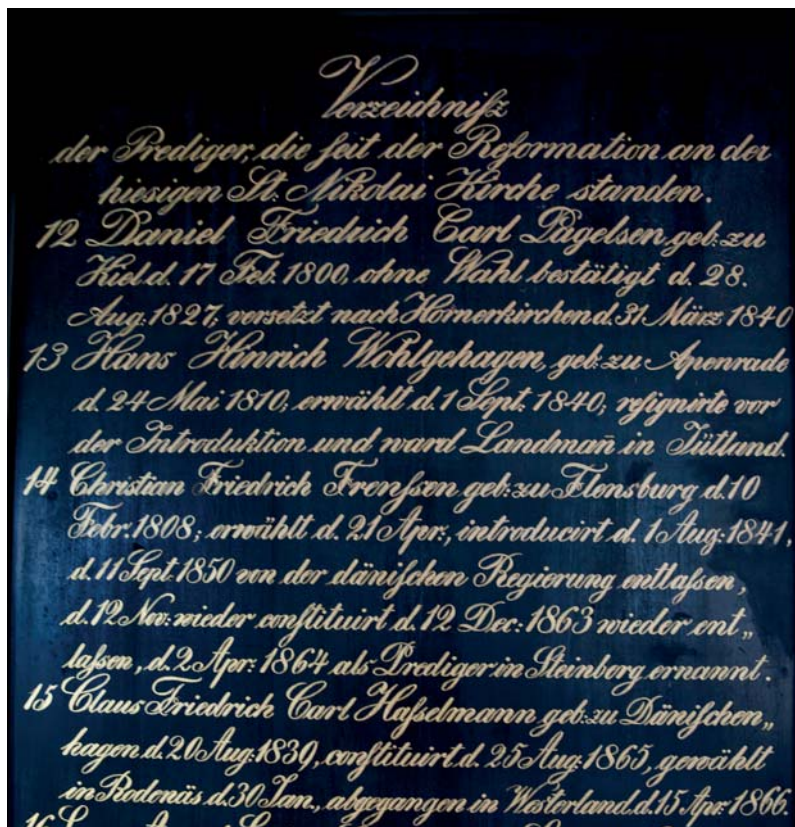 Verzeichniſz
der Prediger, die ſeit der Reformation an der
hiesigen St. Nikolai Kirche standen.
12 Daniel Friedrich Carl Pagelsen geb: zu
Kiel d. 17 Feb. 1800, ohne Wahl bestätigt d. 28.
Aug: 1827, versetzt nach Hörnerkirchen d. 31 März 1840
13 Hans Hinrich Wohlgehagen, geb: zu Apenrade
d. 24 Mai 1810; erwählt d. 1 Sept. 1840; reſignirte vor
der Introduktion und ward Landmañ in Jütland.
14 Christian Friedrich Frenſsen geb: zu Flensburg d. 10
Febr. 1808; erwählt d. 21 Apr:, introducirt d. 1 Aug: 1841,
d. 11 Sept. 1850 von der däniſchen Regierung entlaſsen,
d. 12 Nov: wieder conſtituirt d. 12 Dec: 1863 wieder ent„
laſsen, d. 2 Apr: 1864 als Prediger in Steinberg ernannt.
15 Claus Friedrich Carl Haſselmann geb: zu Däniſchen„
hagen d. 20 Aug: 1839, conſtituirt d. 25 Aug: 1865, gewählt
in Rodenäs d. 30 Jan., abgegangen in Westerland d. 15 Apr: 1866.
16